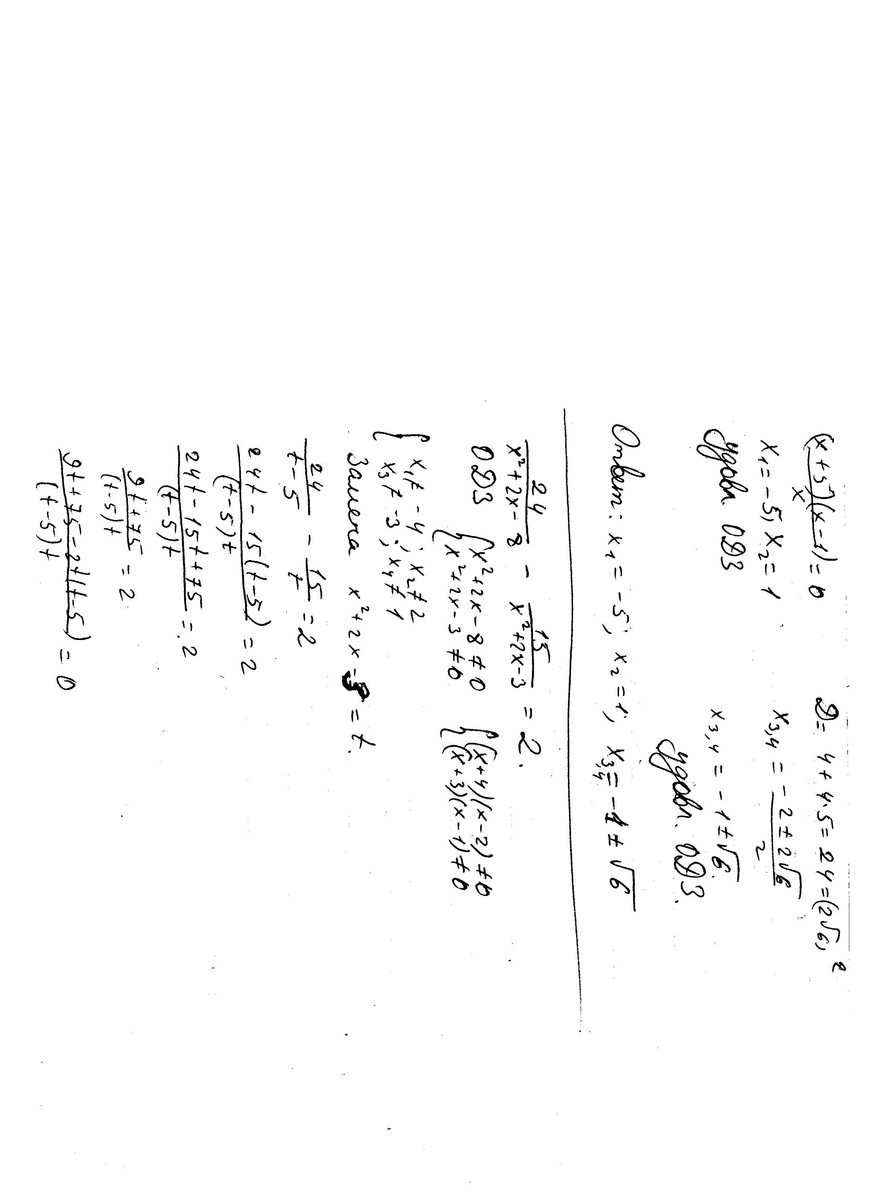 (x+5)(x-1)/x = 0
x₁ = -5, x₂ = 1
удовл. ОДЗ
D = 4 + 4·5 = 24 = (2√6)²
x₃,₄ = -2 ± 2√6 / 2
x₃,₄ = -1 ± √6
удовл. ОДЗ.
Ответ: x₁ = -5; x₂ = 1; x₃,₄ = -1 ± √6
24/(x²+2x-8) - 15/(x²+2x-3) = 2.
ОДЗ {x²+2x-8 ≠ 0 {(x+4)(x-2) ≠ 0
{x²+2x-3 ≠ 0 {(x+3)(x-1) ≠ 0
{x₁ ≠ -4; x₂ ≠ 2
{x₃ ≠ -3; x₄ ≠ 1
Замена x²+2x-3 = t.
24/(t-5) - 15/t = 2
(24t - 15(t-5))/((t-5)t) = 2
(24t - 15t + 75)/((t-5)t) = 2
(9t+75)/((t-5)t) = 2
(9t+75-2t(t-5))/((t-5)t) = 0